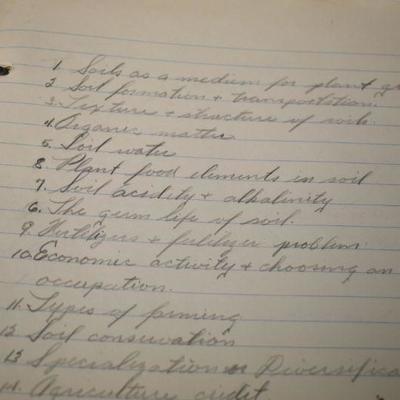 1. Soils as a medium for plant
2 Soil formation + transportation.
3. Texture + structure of soils.
4. Organic matter
5. Soil water
8. Plant food elements in soil
7. Soil acidity + alkalinity
6. The germ life of soil.
9. Fertilizers + fertilizer problem
10. Economic activity + choosing an
occupation.
11. Types of farming
12 Soil conservation
13 Specialization or Diversifica
14. Agriculture credit